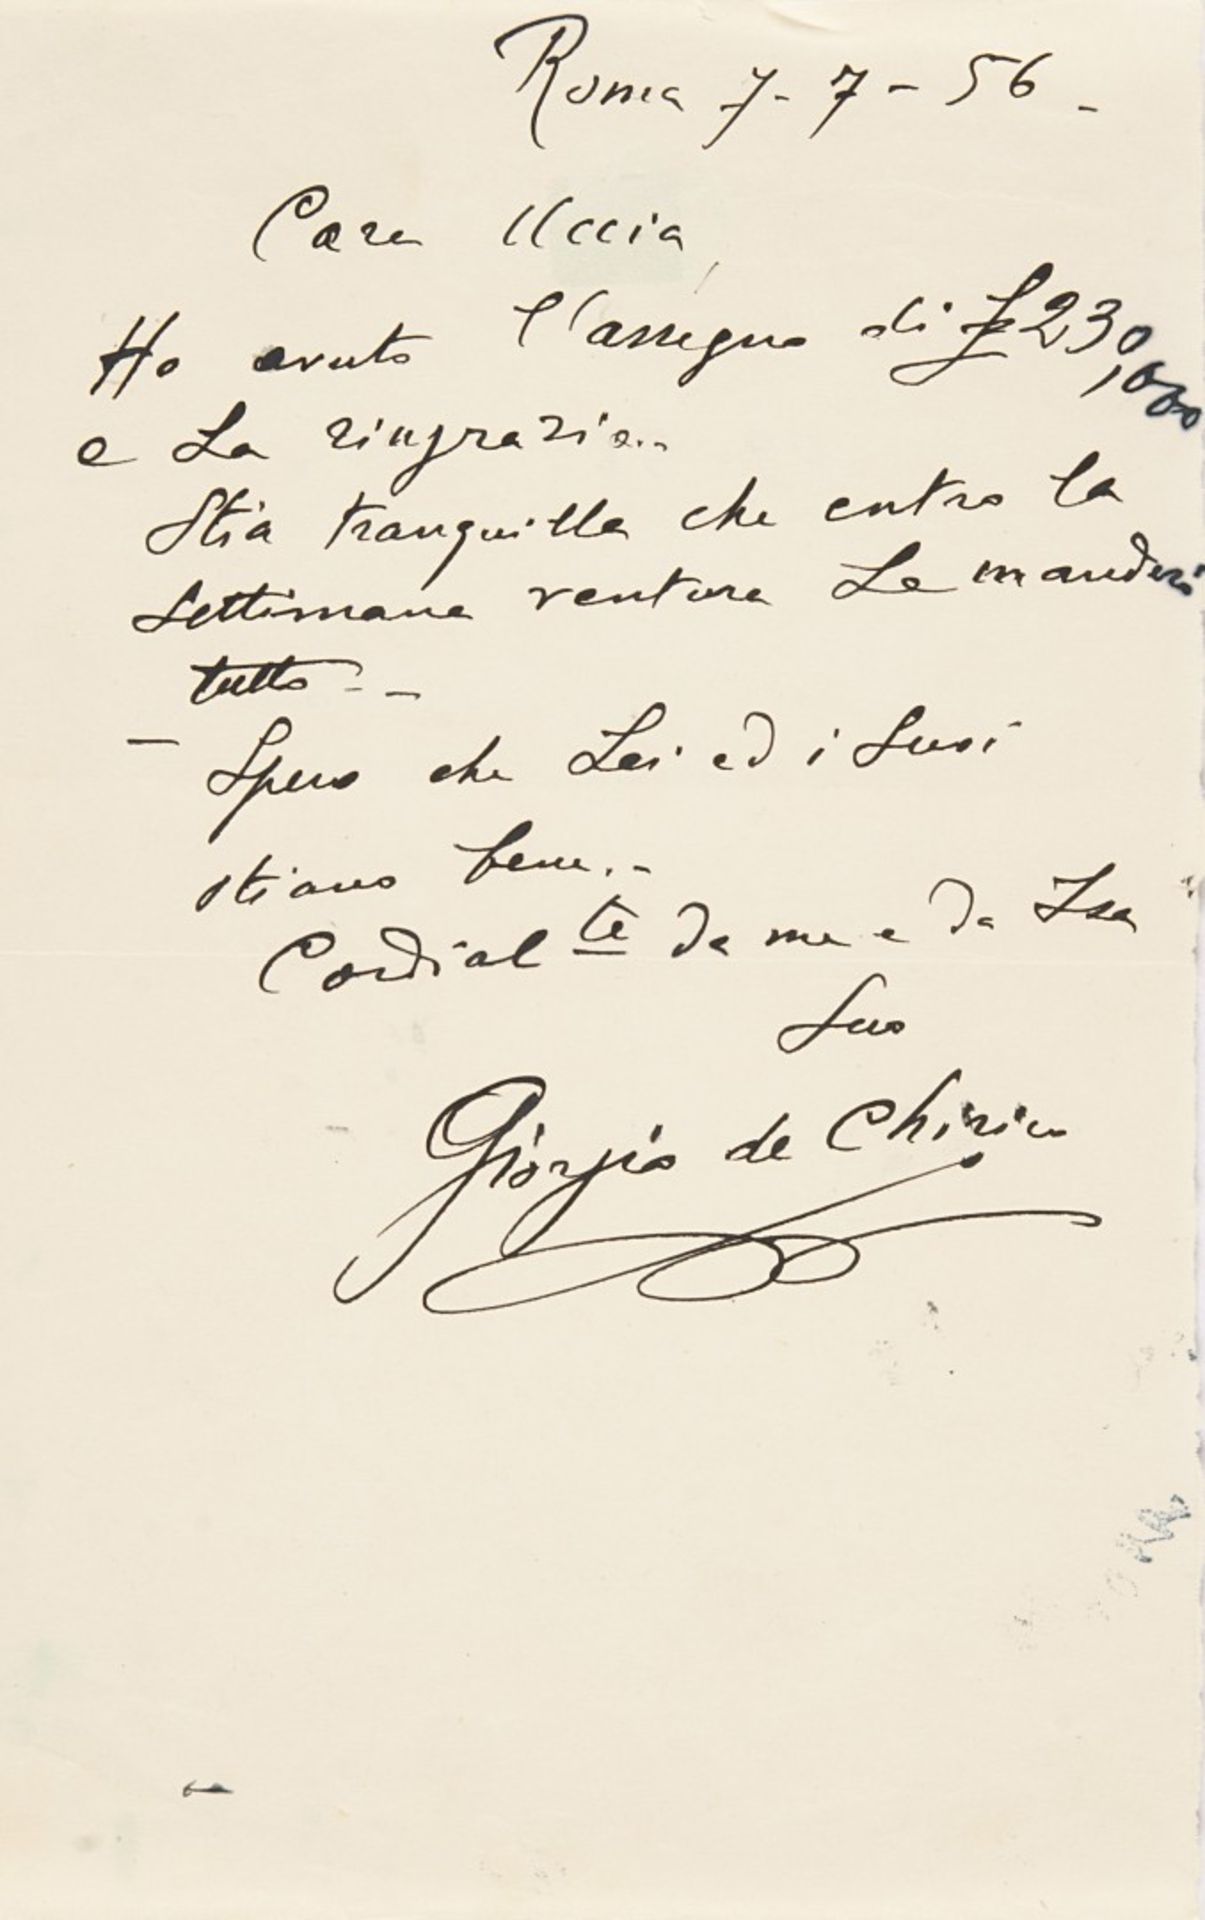 Roma 7-7-56-
Cara Uccia,
Ho avuto l'assegno di £ 230,000
e La ringrazio..
Stia tranquilla che entro la
settimana ventura Le manderò
tutto--
- Spero che Lei ed i Suoi
stiano bene.-
Cordial te da me e da Isa
Suo
Giorgio de Chirico